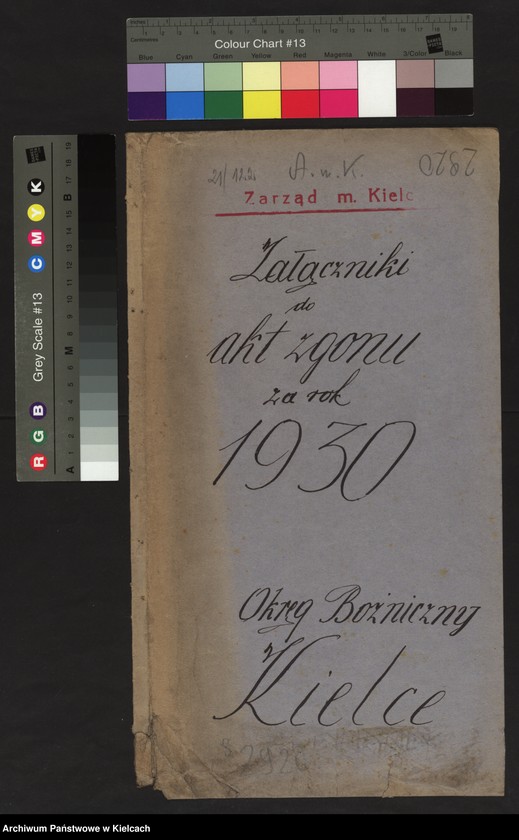 Colour Chart #13
Blue Cyan Green Yellow Red Magenta White 3/Color Black
Grey Scale #13
R G B
C M Y K
A M B
21/1221
A. m. K.
2920
Zarząd m. Kielc
Załączniki
do
akt zgonu
za rok
1930
Okręg Bożniczny
Kielce
Archiwum Państwowe w Kielcach